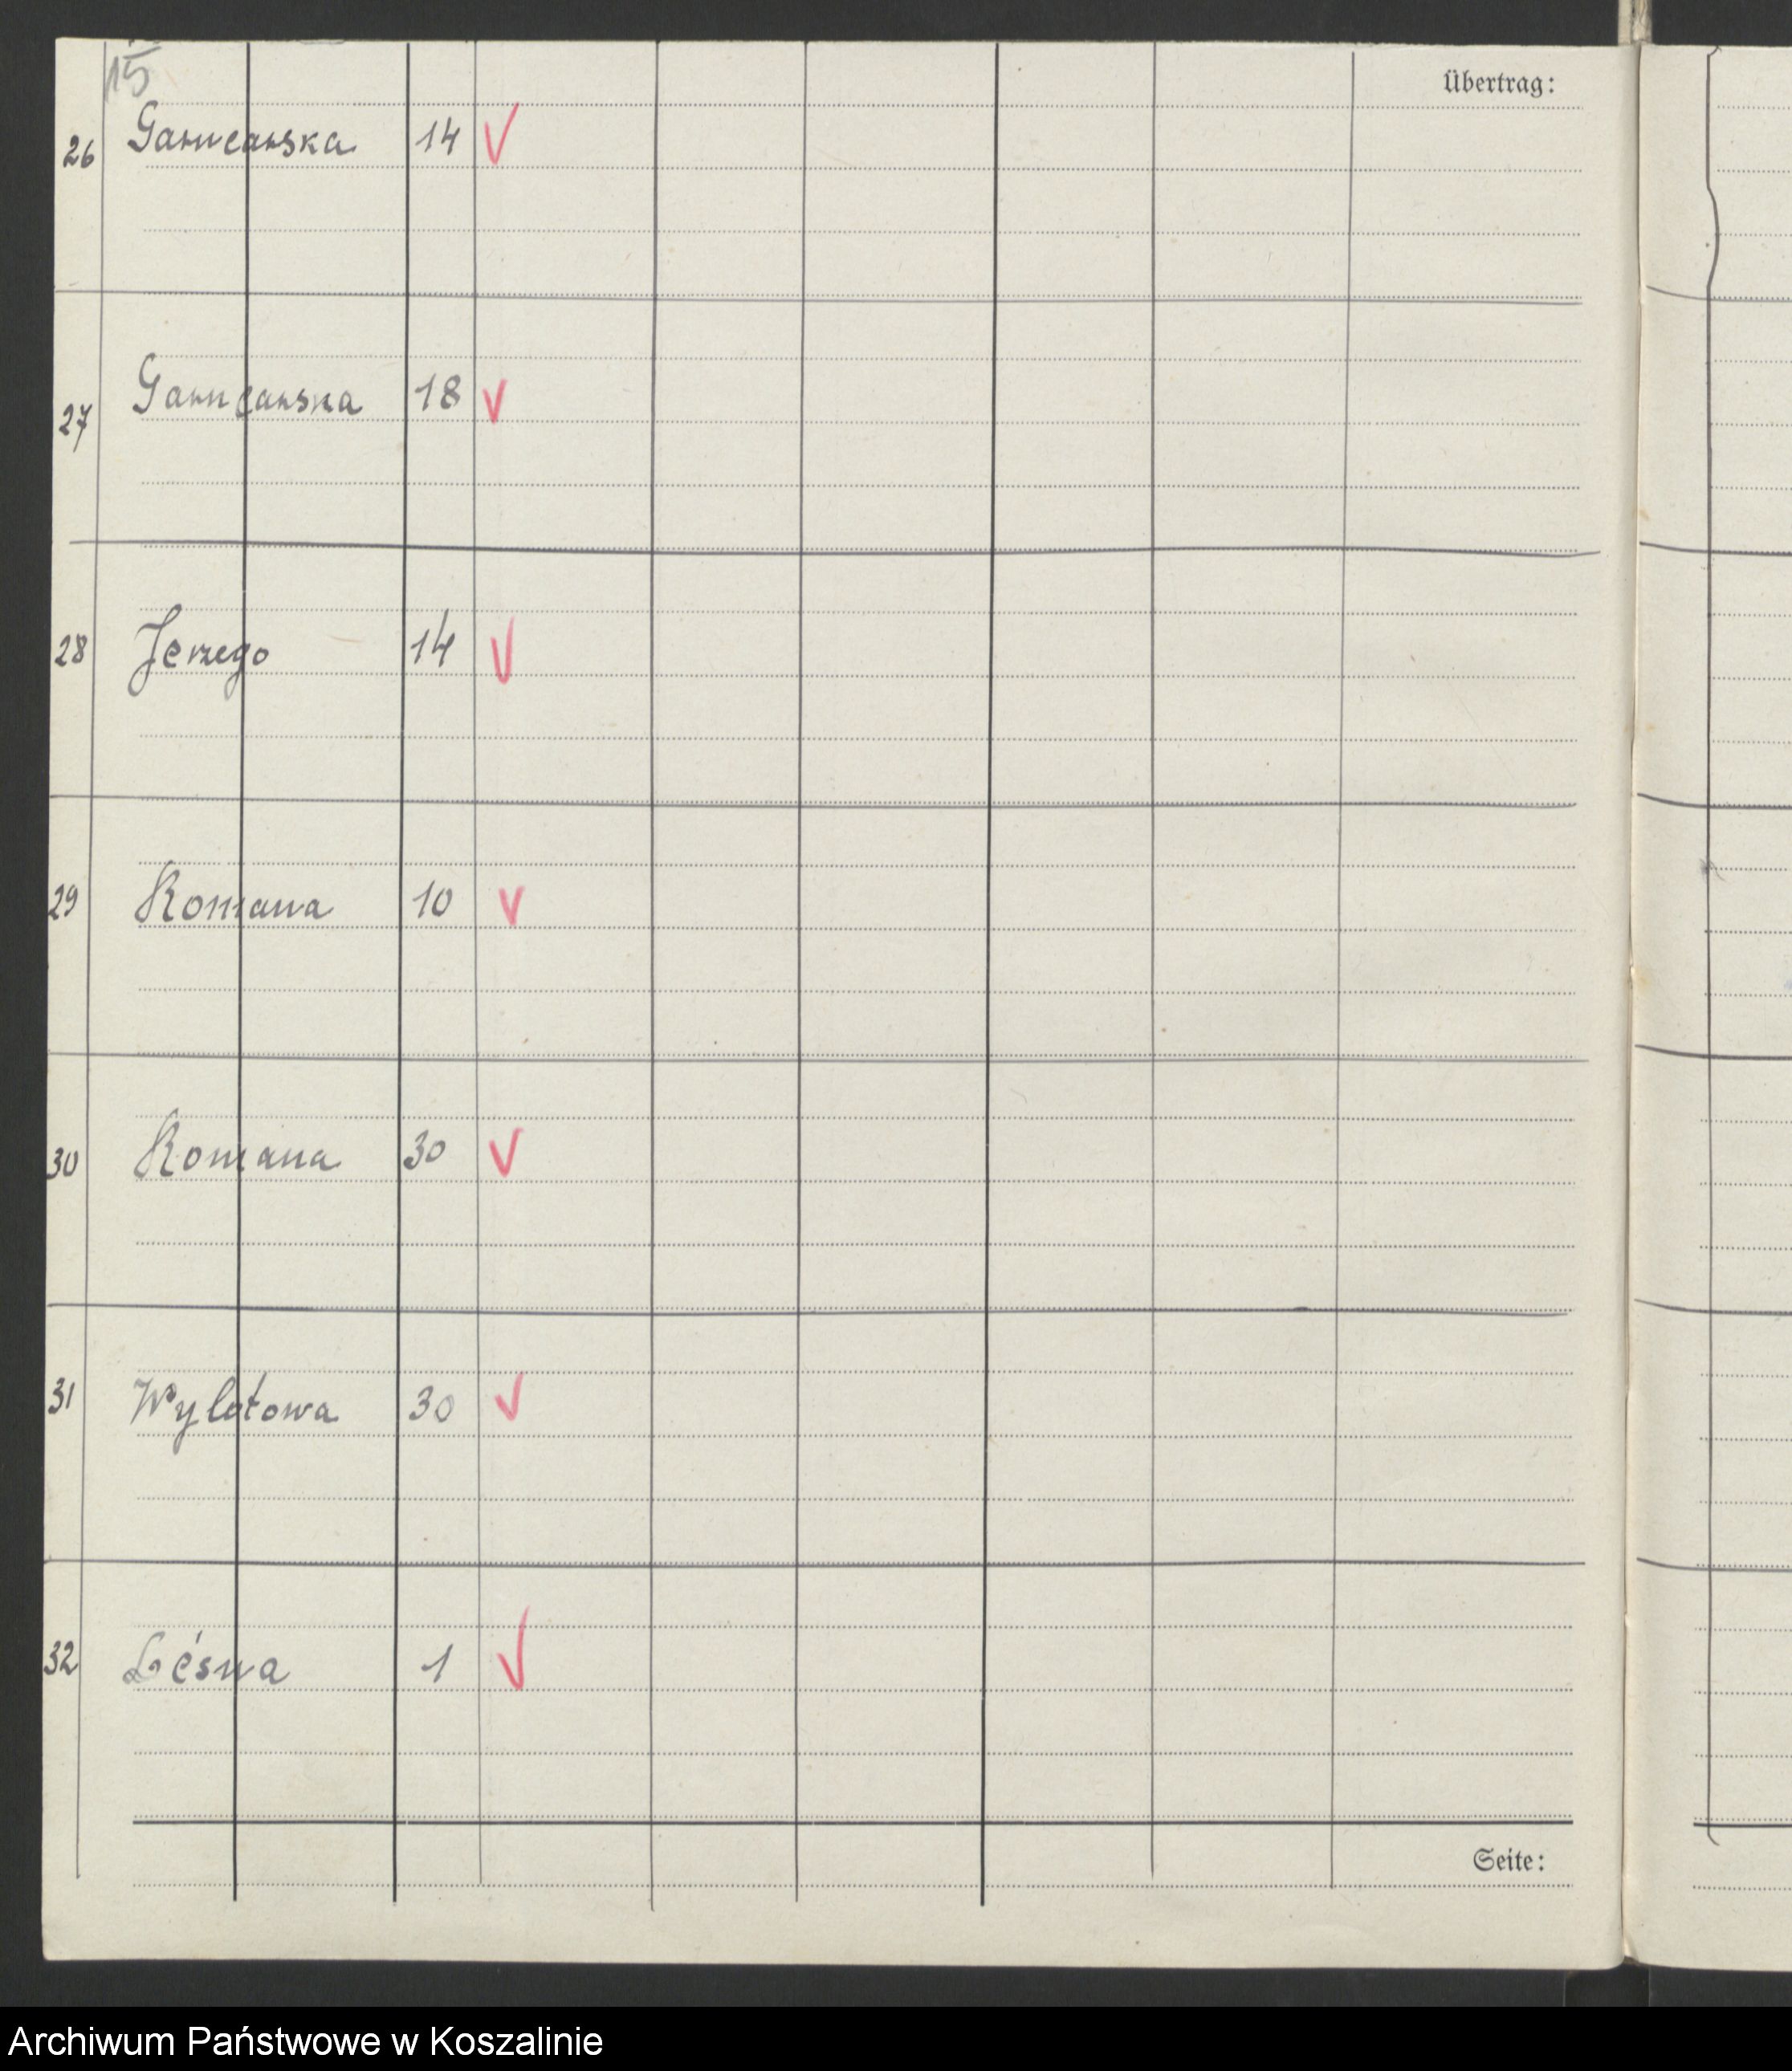 15
Übertrag:
26 Garncarska 14 V
27 Garncarska 18 V
28 Jerzego 14 V
29 Romana 10 V
30 Romana 30 V
31 Wylotowa 30 V
32 Leśna 1 V
Seite:
Archiwum Państwowe w Koszalinie